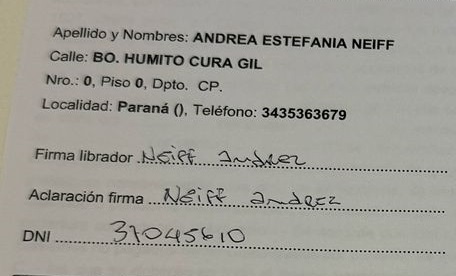 Apellido y Nombres: ANDREA ESTEFANIA NEIFF
Calle: BO. HUMITO CURA GIL
Nro.: 0, Piso 0, Dpto. CP.
Localidad: Paraná (), Teléfono: 3435363679
Firma librador Neiff Andrez
Aclaración firma Neiff Andrez
DNI 37045610